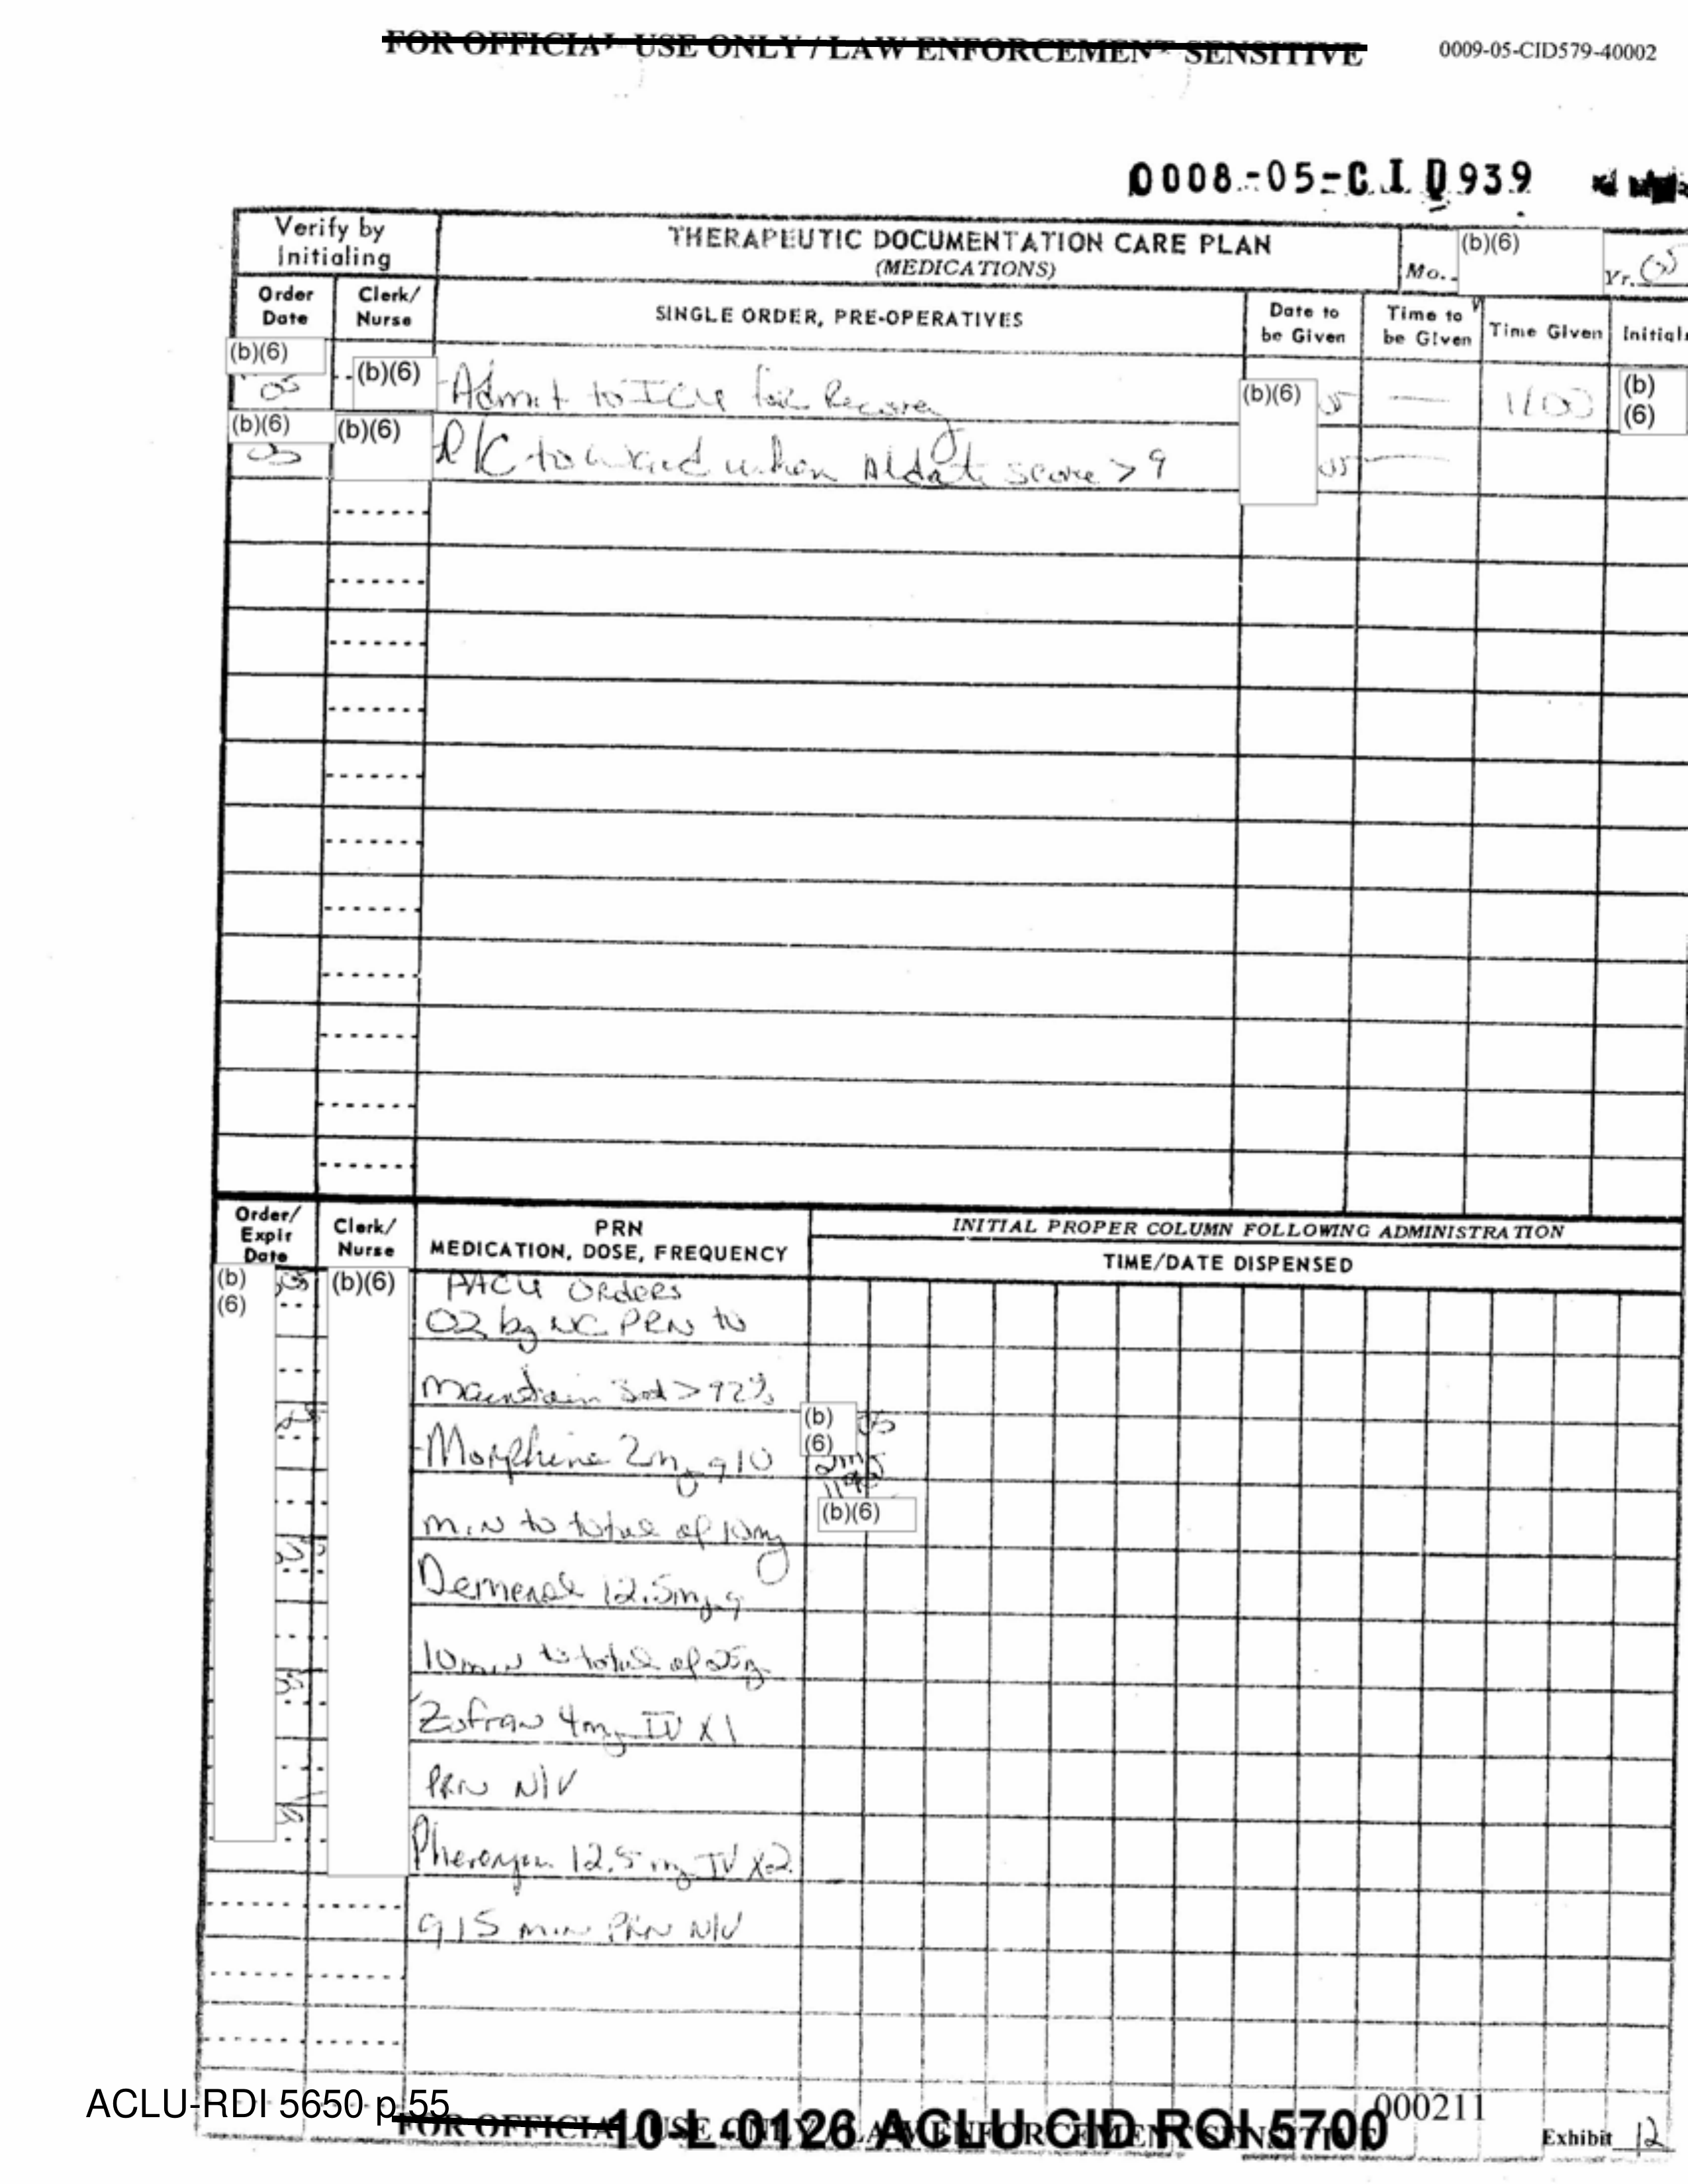 FOR OFFICIAL USE ONLY / LAW ENFORCEMENT SENSITIVE
0009-05-CID579-40002
0008-05-CID939
Verify by Initialing
THERAPEUTIC DOCUMENTATION CARE PLAN
(MEDICATIONS)
Mo.
(b)(6)
Yr. 05
Order Date
Clerk/ Nurse
SINGLE ORDER, PRE-OPERATIVES
Date to be Given
Time to be Given
Time Given
Initials
(b)(6)
05
(b)(6)
-Admit to ICU for Recovery
(b)(6)
05
—
1100
(b)
(6)
(b)(6)
05
(b)(6)
D/C to ward when Aldate score > 9
05
Order/ Expir Date
Clerk/ Nurse
PRN
MEDICATION, DOSE, FREQUENCY
INITIAL PROPER COLUMN FOLLOWING ADMINISTRATION
TIME/DATE DISPENSED
(b)
(6)
05
(b)(6)
PACU ORders
O2 by NC PRN to
maintain Sat > 92%
(b)
(6)
05
-Morphine 2mg q 10
2mg
(b)(6)
min to total of 10mg
Demerol 12.5mg q
10 min to total of 25mg
Zofran 4mg IV X1
PRN N/V
Phenergan 12.5 mg IV X2
q 15 min PRN N/V
ACLU-RDI 5650 p.55
000211
FOR OFFICIAL USE ONLY / LAW ENFORCEMENT SENSITIVE
10-L-0126 ACLU CID ROI 5700
Exhibit 12